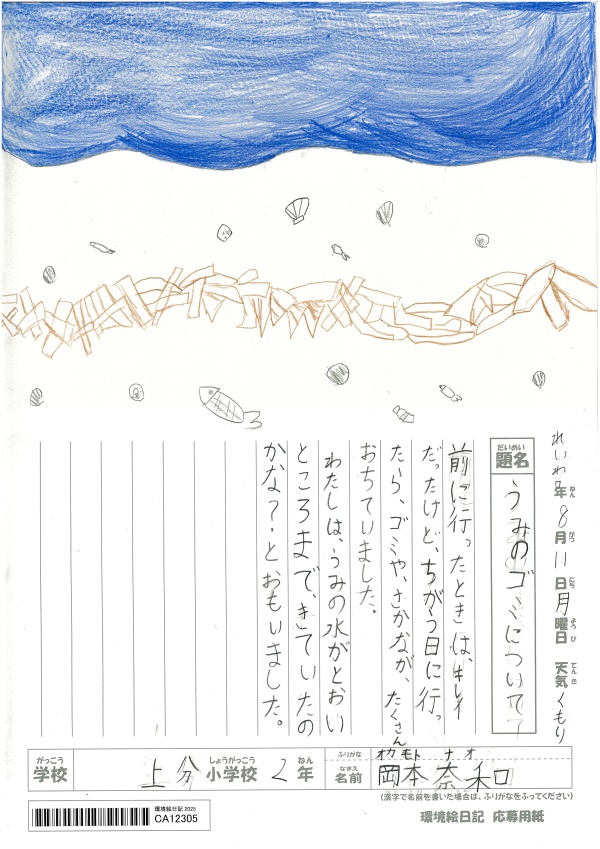 れいわ7年8月11日月曜日 天気くもり
ねん がつ にち ようび てんき
だいめい
題名 うみのゴミについて
前に行ったときは、キレイ
だったけど、ちがう日に行っ
たら、ゴミや、さかなが、たくさん
おちていました。
わたしは、うみの水がとおい
ところまで、きていたの
かな?とおもいました。
がっこう しょうがっこう ねん ふりがな オカモト ナオ
学校 上分小学校 2年 なまえ 名前 岡本奈和
(漢字で名前を書いた場合は、ふりがなをふってください)
環境絵日記 2025
CA12305
環境絵日記 応募用紙